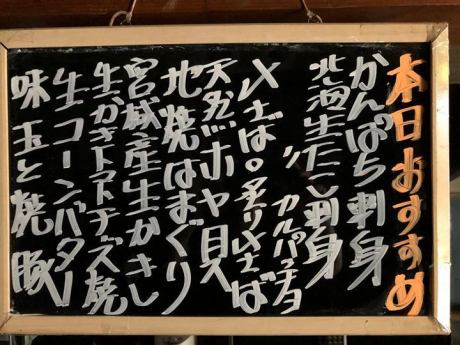 本日おすすめ
かんぱち刺身
北海生だこ刺身
〃 カルパッチョ
〆さば。炙り〆さば
天然ホヤ貝
地焼はまぐり
宮城産生かきし
生かきトマトチーズ焼
生コーンバター
味玉と焼豚